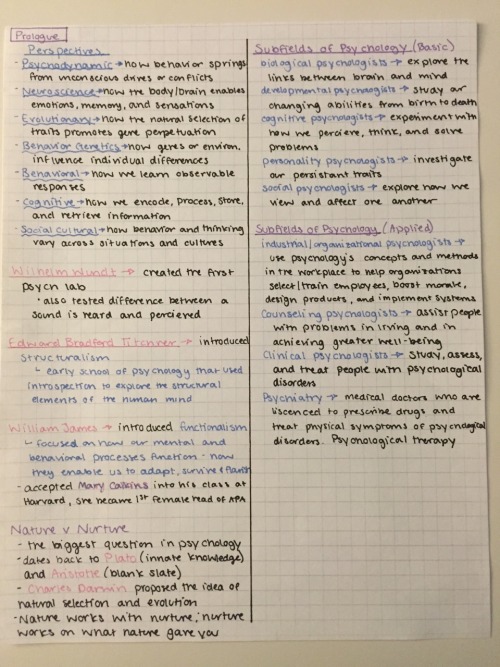 Prologue
Perspectives
- Psychodynamic → how behavior springs
from unconscious drives or conflicts
- Neuroscience → how the body/brain enables
emotions, memory, and sensations
- Evolutionary → how the natural selection of
traits promotes gene perpetuation
- Behavior Genetics → how genes or environ.
influence individual differences
- Behavioral → how we learn observable
responses
- Cognitive → how we encode, process, store,
and retrieve information
- Social Cultural → how behavior and thinking
vary across situations and cultures
Wilhelm Wundt → created the first
psych lab
• also tested difference between a
sound is heard and percieved
Edward Bradford Titchner → introduced
structuralism
↳ early school of psychology that used
introspection to explore the structural
elements of the human mind
William James → introduced functionalism
↳ focused on how our mental and
behavioral processes function - how
they enable us to adapt, survive & flourish
- accepted Mary Calkins into his class at
Harvard, she became 1st female head of APA
Nature v Nurture
- the biggest question in psychology
- dates back to Plato (innate knowledge)
and Aristotle (blank slate)
- Charles Darwin proposed the idea of
natural selection and evolution
- Nature works with nurture; nurture
works on what nature gave you
Subfields of Psychology (Basic)
biological psychologists → explore the
links between brain and mind
developmental psychologists → study our
changing abilities from birth to death
cognitive psychologists → experiment with
how we percieve, think, and solve
problems
personality psychologists → investigate
our persistant traits
social psychologists → explore how we
view and affect one another
Subfields of Psychology (Applied)
industrial/organizational psychologists →
use psychology's concepts and methods
in the workplace to help organizations
select/train employees, boost morale,
design products, and implement systems
Counseling psychologists → assist people
with problems in living and in
achieving greater well-being
Clinical psychologists → study, assess,
and treat people with psychological
disorders
Psychiatry → medical doctors who are
liscenced to prescribe drugs and
treat physical symptoms of psychological
disorders. Psychological therapy